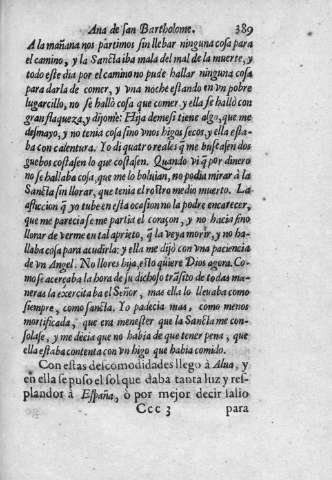 Ana de san Bartholome. 389
A la mañana nos partimos sin llebar ninguna cosa para
el camino, y la Sancta iba mala del mal de la muerte, y
todo este dia por el camino no pude hallar ninguna cosa
para darla de comer, y vna noche estando en vn pobre
lugarcillo, no se hallò cosa que comer, y ella se hallò con
gran flaqueza, y dijome: Hija deme si tiene algo, que me
desmayo, y no tenia cosa sino vnos higos secos, y ella esta-
ba con calentura. Yo di quatro reales q̃ me buscasen dos
guebos costasen lo que costasen. Quando vi q̃ por dinero
no se hallaba cosa, que me lo boluian, no podia mirar à la
Sancta sin llorar, que tenia el rostro medio muerto. La
afliccion q̃ yo tube en esta ocasion no la podre encarecer,
que me parecia se me partia el coraçon, y no hacia sino
llorar de verme en tal aprieto, q̃ la veya morir, y no ha-
llaba cosa para acudirla: y ella me dijo con vna paciencia
de vn Angel. No llores hija, esto quiere Dios agora. Co-
mo se acercaba la hora de su dichoso trãsito de todas ma-
neras la exercitaba el Señor, mas ella lo lleuaba como
siempre, como sancta. Yo padecia mas, como menos
mortificada, que era menester que la Sancta me con-
solase, y me decia que no habia de que tener pena, que
ella estaba contenta con vn higo que habia comido.
Con estas descomodidades llego à Alua, y
en ella se puso el sol que daba tanta luz y res-
plandor à España, ò por mejor decir salio
Ccc 3 para